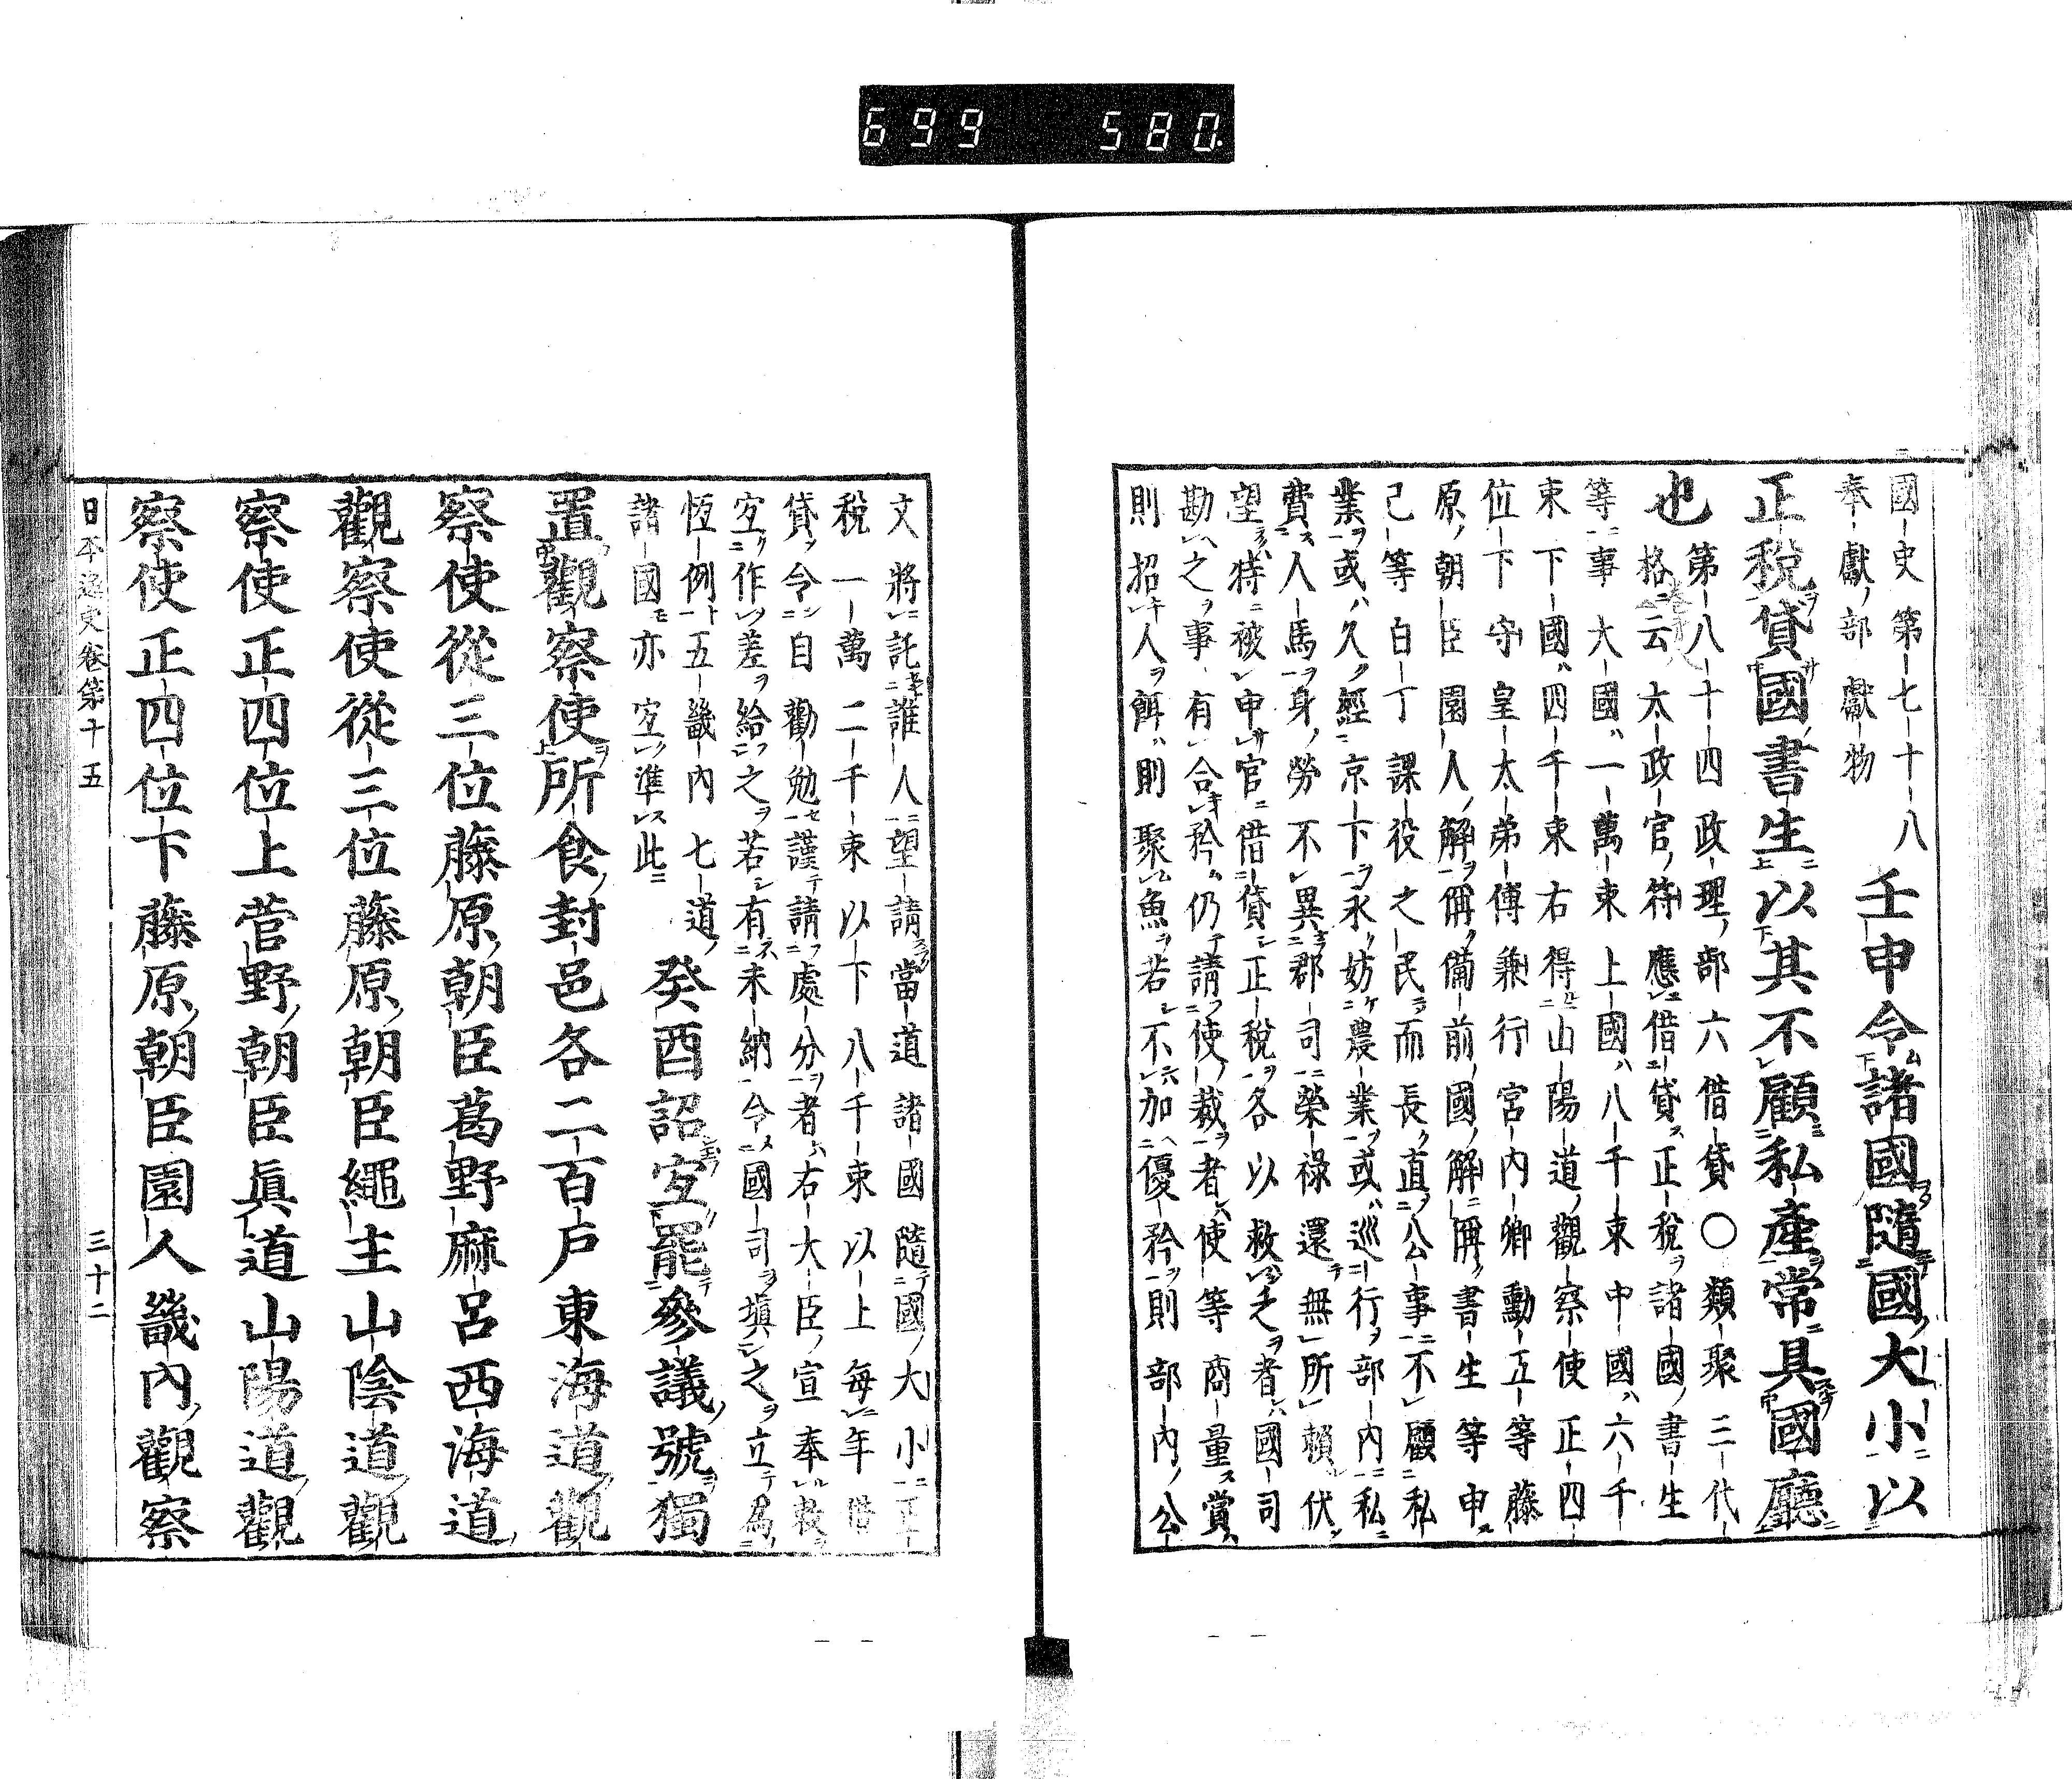 699 580
國史第七十八
奉獻部獻物
壬申令諸國隨國大小以
正稅貸國書生以其不顧私產常具國廳
也
第八十四政理部六借貸○類聚三代
格云太政官符應借貸正稅諸國書生
等事大國一萬束上國八千束中國六千
束下國四千束右得山陽道觀察使正四
位下守皇太弟傅兼行宮內卿勳五等藤
原朝臣園人解偁備前國解偁書生等申
己等白丁課役之民而長直公事不顧私
業或久經京下永妨農業或巡行部內私
費人馬身勞不異郡司榮祿還無所賴伏
望特被申官借貸正稅各以救乏者國司
勘之事有合矜仍請使裁者使等商量賞
則招人餌則聚魚若不加優矜則部內公
文將託誰人望請當道諸國隨國大小正
稅一萬二千束以下八千束以上每年借
貸令自勸勉謹請處分者右大臣宣奉救
宜作差給之若有未納令國司塡之立爲
恆例五畿內七道
諸國亦宜準此
癸酉詔宜罷參議號獨
置觀察使所食封邑各二百戶東海道觀
察使從三位藤原朝臣葛野麻呂西海道
觀察使從三位藤原朝臣繩主山陰道觀
察使正四位上菅野朝臣眞道山陽道觀
察使正四位下藤原朝臣園人畿內觀察
日本逸史卷第十五 三十二